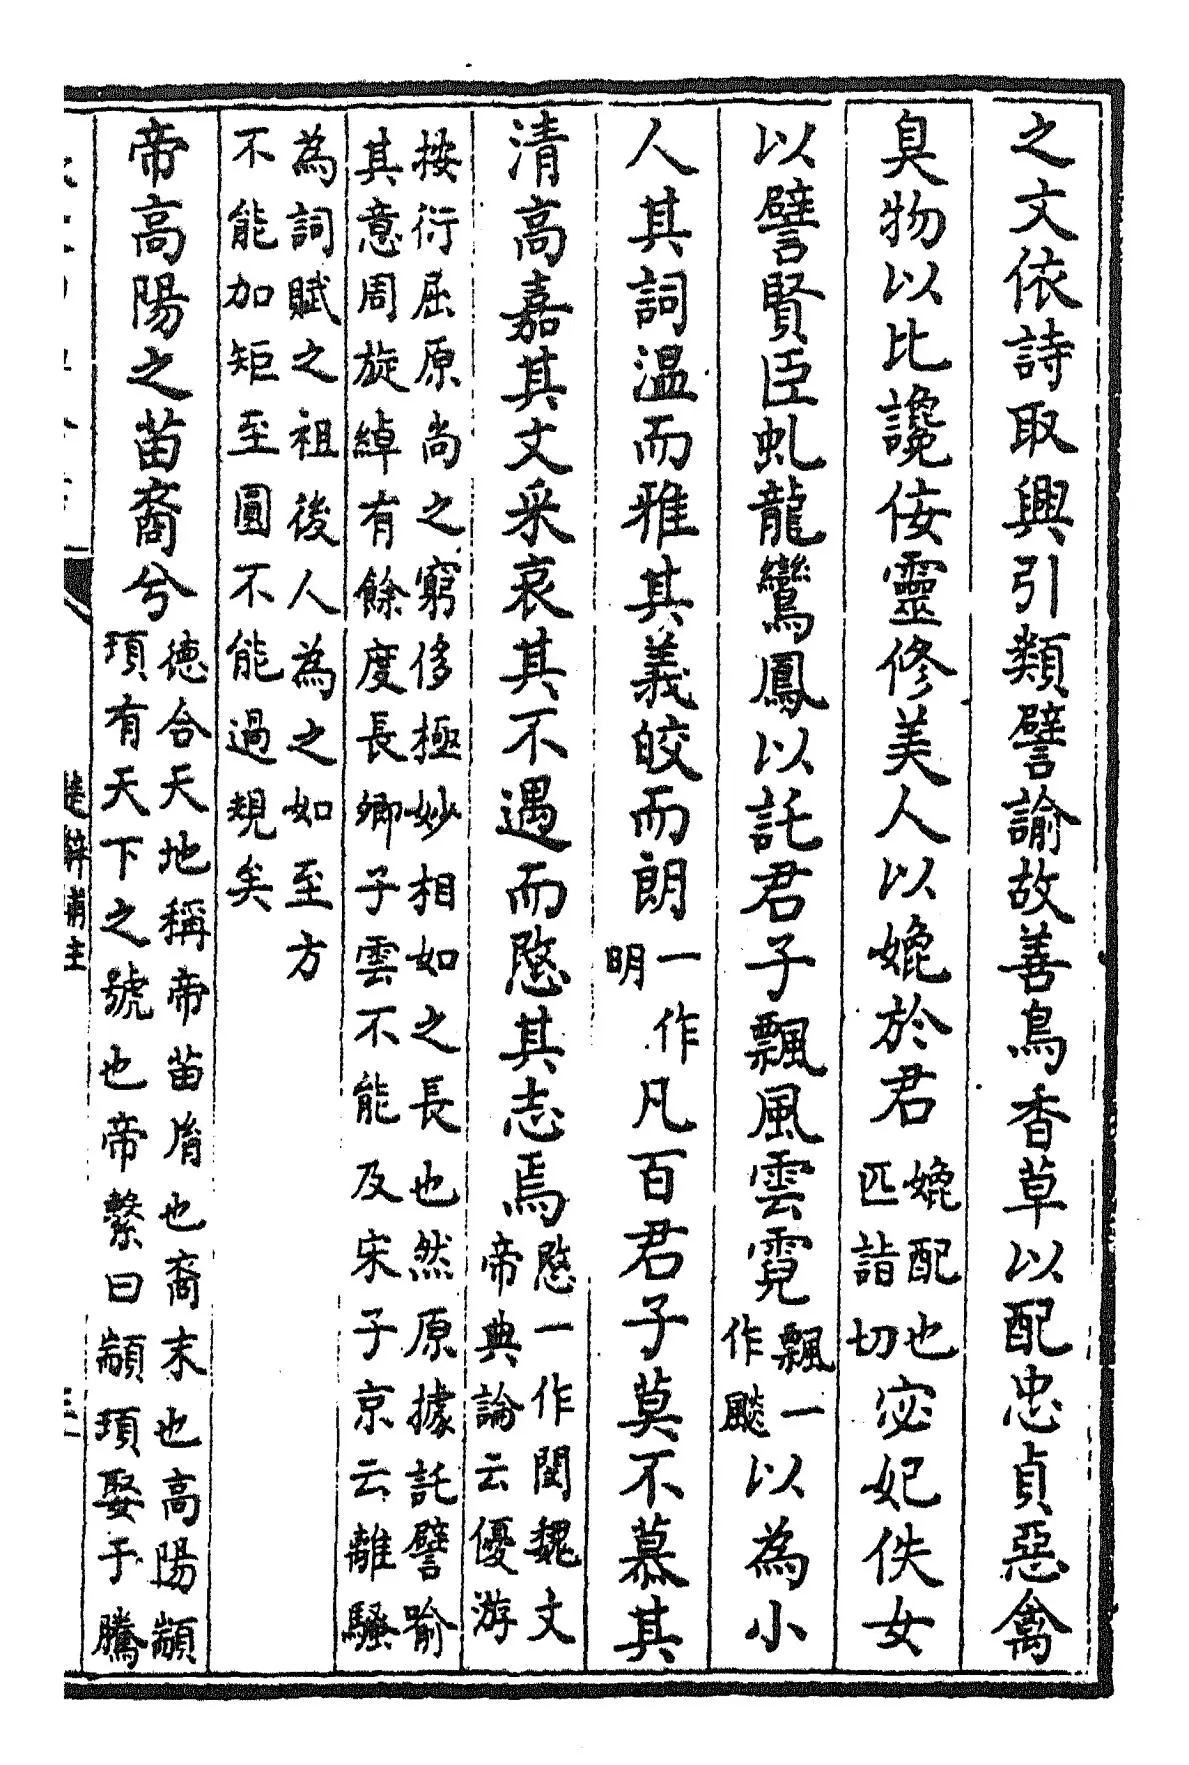 之文依詩取興引類譬諭故善鳥香草以配忠貞惡禽
臭物以比讒佞靈修美人以媲於君媲配也匹詣切宓妃佚女
以譬賢臣虬龍鸞鳳以託君子飄風雲霓飄一作飈以為小
人其詞温而雅其義皎而朗一作明凡百君子莫不慕其
清高嘉其文采哀其不遇而愍其志焉愍一作閔魏文帝典論云優游
按衍屈原尚之窮侈極妙相如之長也然原據託譬喻
其意周旋綽有餘度長卿子雲不能及宋子京云離騷
為詞賦之祖後人為之如至方
不能加矩至圓不能過規矣
帝高陽之苗裔兮德合天地稱帝苗胤也裔末也高陽顓頊有天下之號也帝繫曰顓頊娶于騰